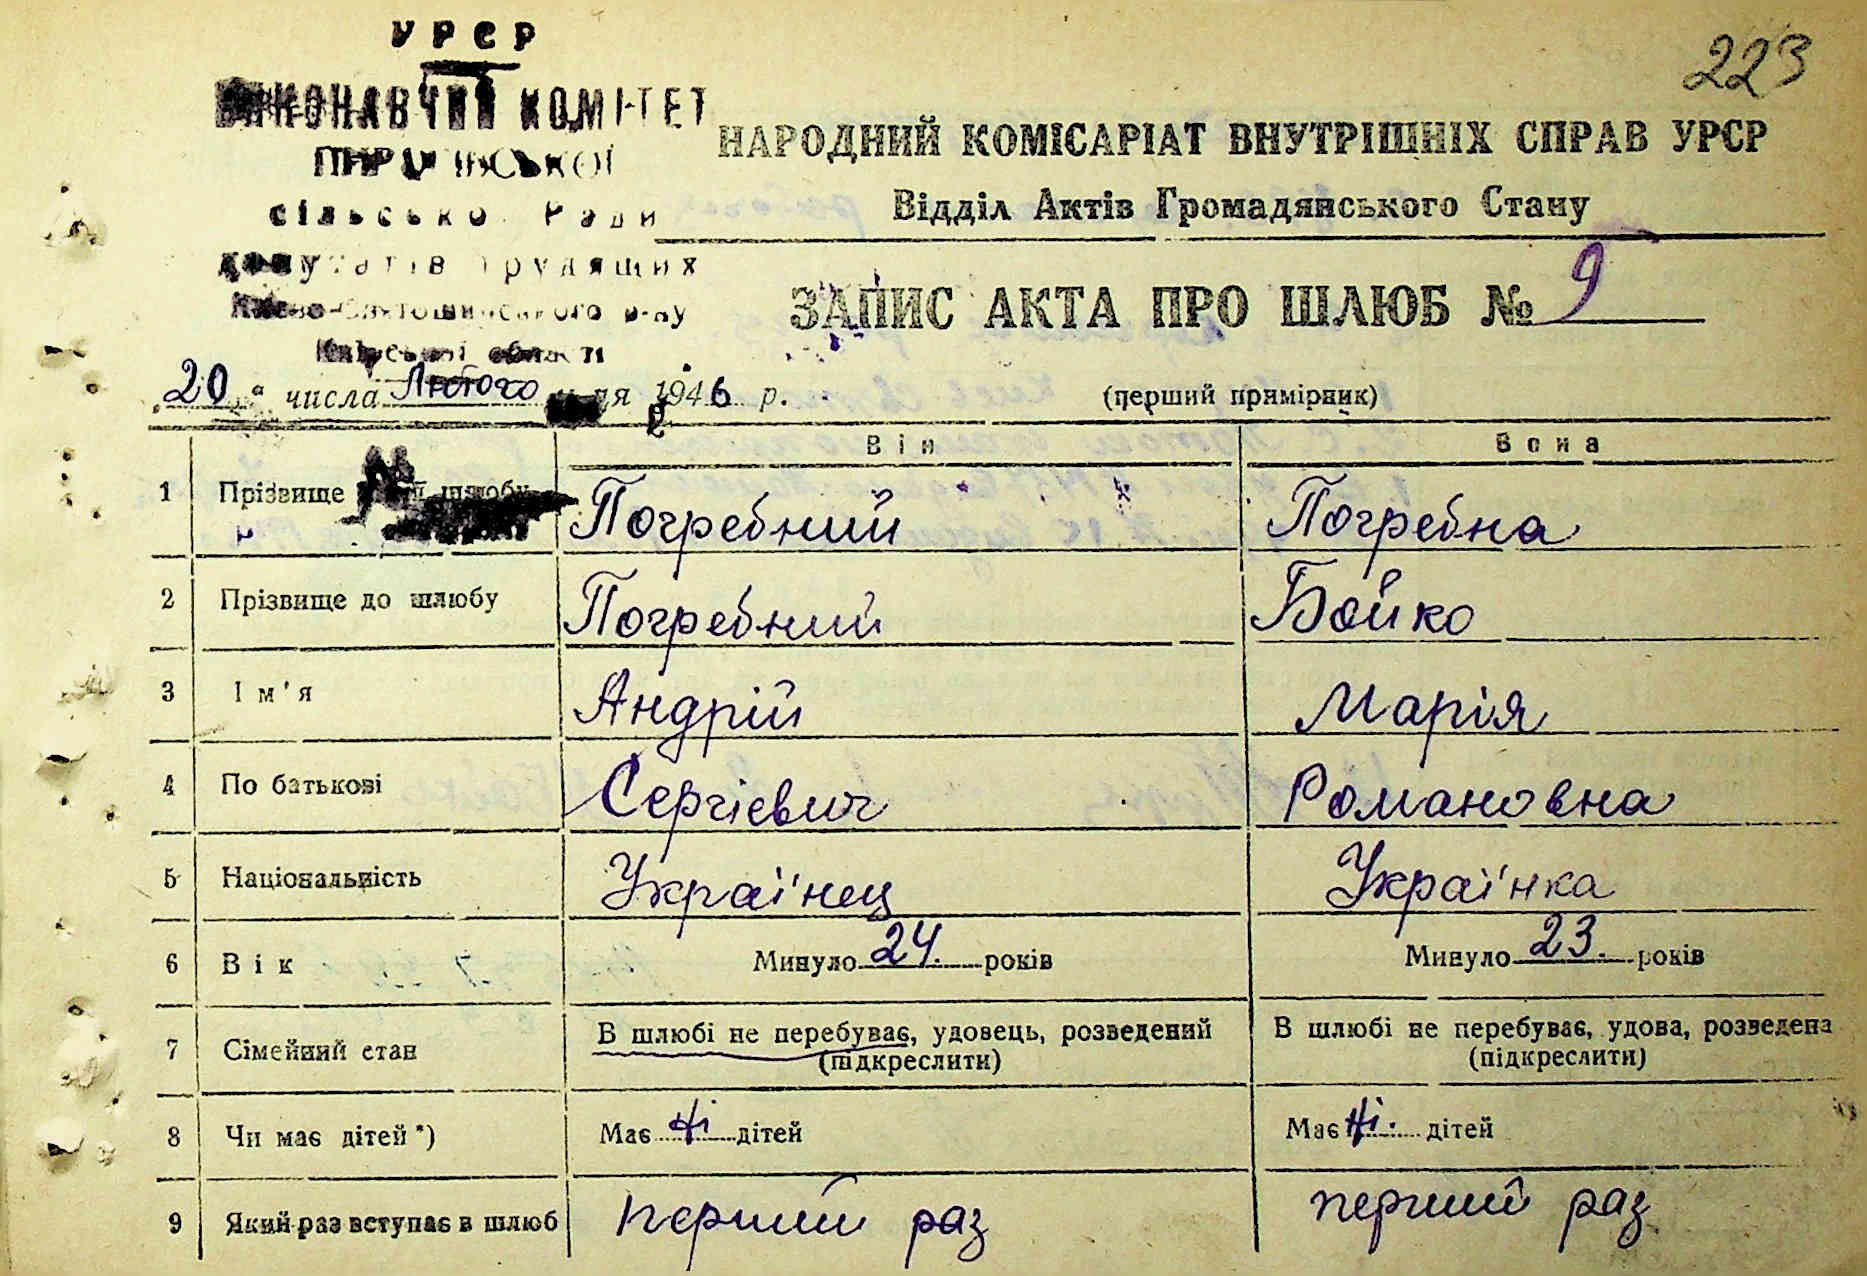 223
УРСР
ВИКОНАВЧИЙ КОМІТЕТ
сільської Ради
депутатів трудящих
Києво-Святошинського р-ну
Київської області
НАРОДНИЙ КОМІСАРІАТ ВНУТРІШНІХ СПРАВ УРСР
Відділ Актів Громадянського Стану
ЗАПИС АКТА ПРО ШЛЮБ № 9
„20“ числа Лютого м-ця 1946 р. (перший примірник)
Він Вона
1 Прізвище шлюбу Погребний Погребна
2 Прізвище до шлюбу Погребний Бойко
3 Ім'я Андрій Марія
4 По батькові Сергієвич Романовна
5 Національність Украї'нец Украі'нка
6 Вік Минуло 24. років Минуло 23. років
7 Сімейний стан В шлюбі не перебуває, удовець, розведений (підкреслити) В шлюбі не перебуває, удова, розведена (підкреслити)
8 Чи має дітей*) Має ні дітей Має ні. дітей
9 Який раз вступає в шлюб перший раз перший раз